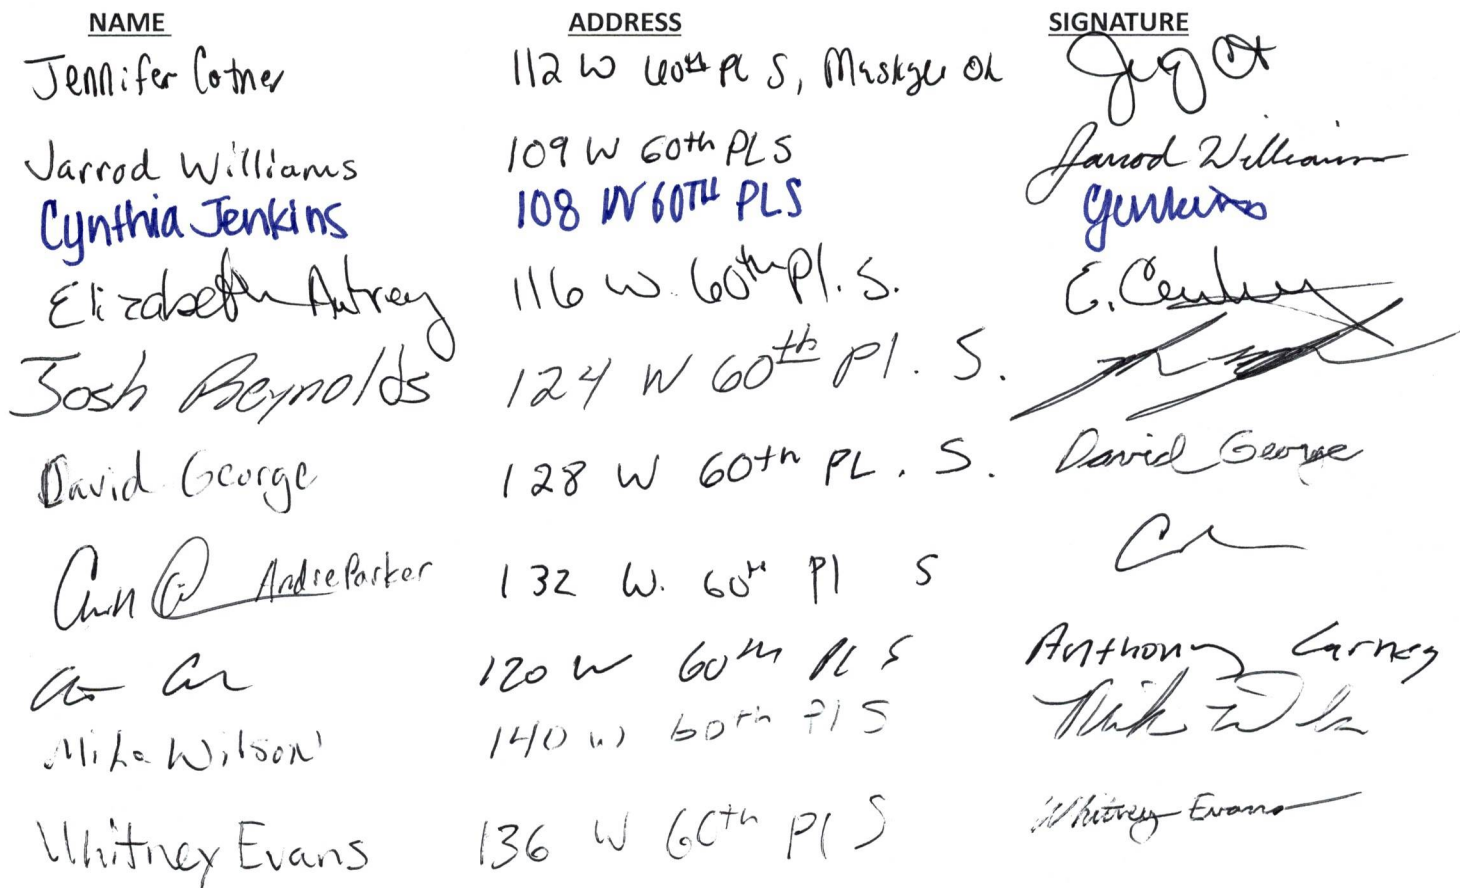 NAME ADDRESS SIGNATURE
Jennifer Cotner 112 W 60th Pl S, Muskogee Ok
Jarrod Williams 109 W 60th PL S Jarrod Williams
Cynthia Jenkins 108 W 60TH PL S CJenkins
Elizabeth Autrey 116 W. 60th Pl. S. E.
Josh Reynolds 124 W 60th Pl. S.
David George 128 W 60th PL. S. David George
Andre Parker 132 W. 60th Pl S
120 W 60th PL S Anthony Carney
Mike Wilson 140 W 60th Pl S
Whitney Evans 136 W 60th Pl S Whitney Evans